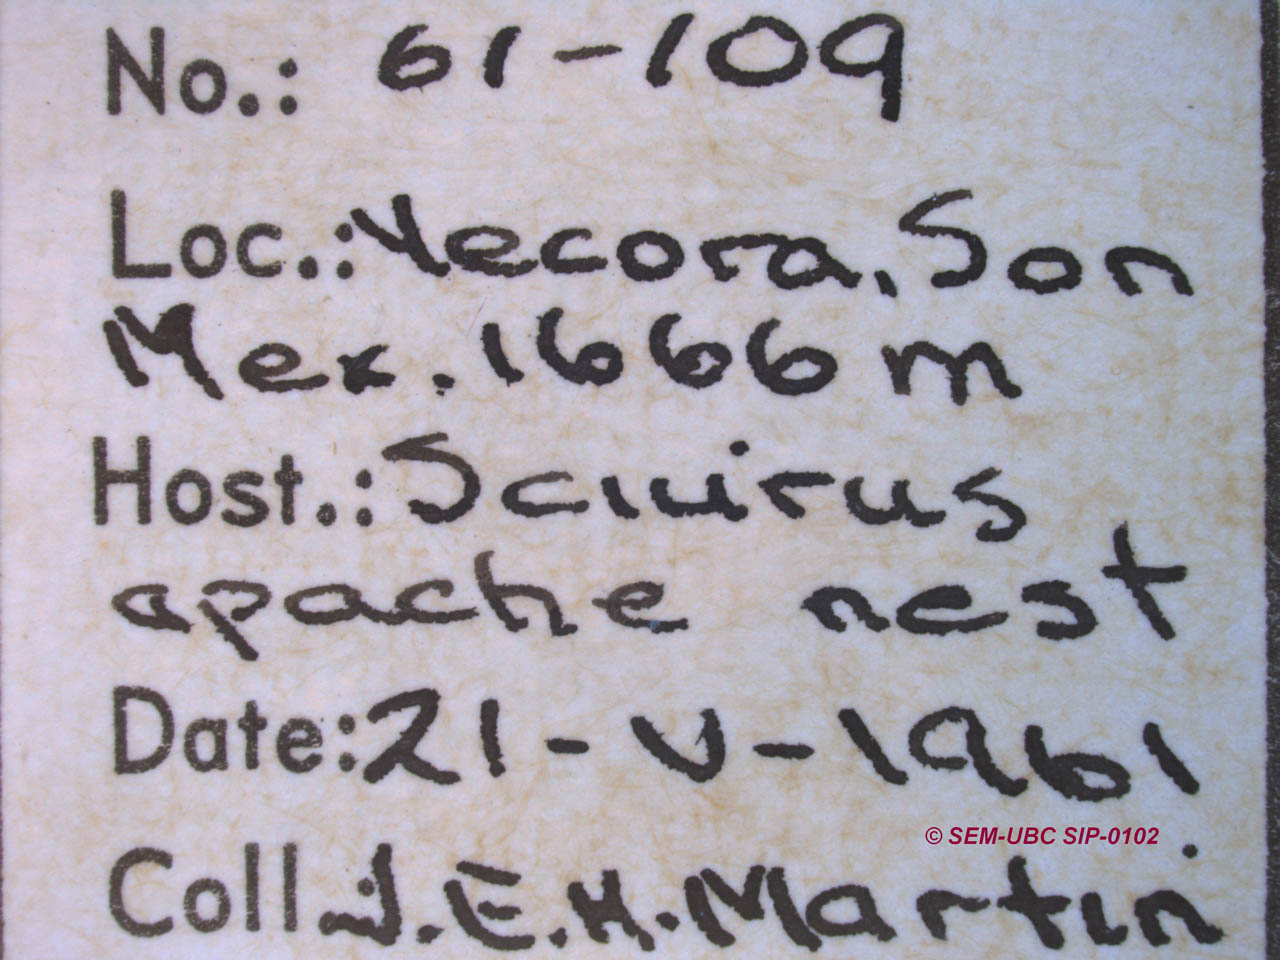 No.: 61-109
Loc.: Yecora, Son
Mex. 1666 m
Host.: Sciuirus
apache nest
Date: 21-V-1961
© SEM-UBC SIP-0102
Coll J.E.H. Martin